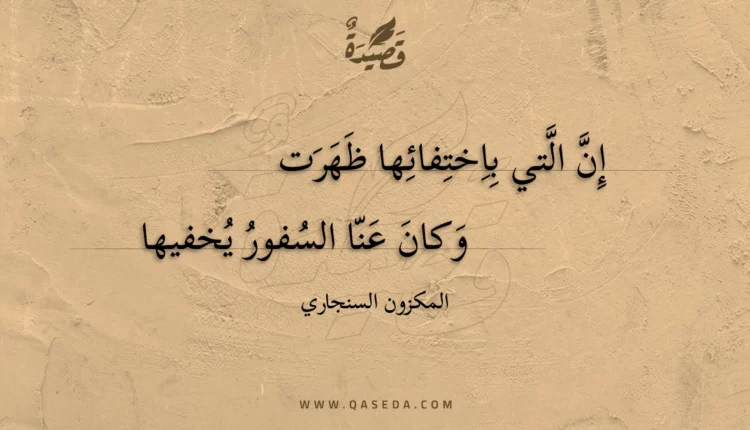 قَصِيدَةٌ
إِنَّ الَّتي بِاِختِفائِها ظَهَرَت
وَكانَ عَنّا السُفورُ يُخفيها
المكزون السنجاري
WWW.QASEDA.COM